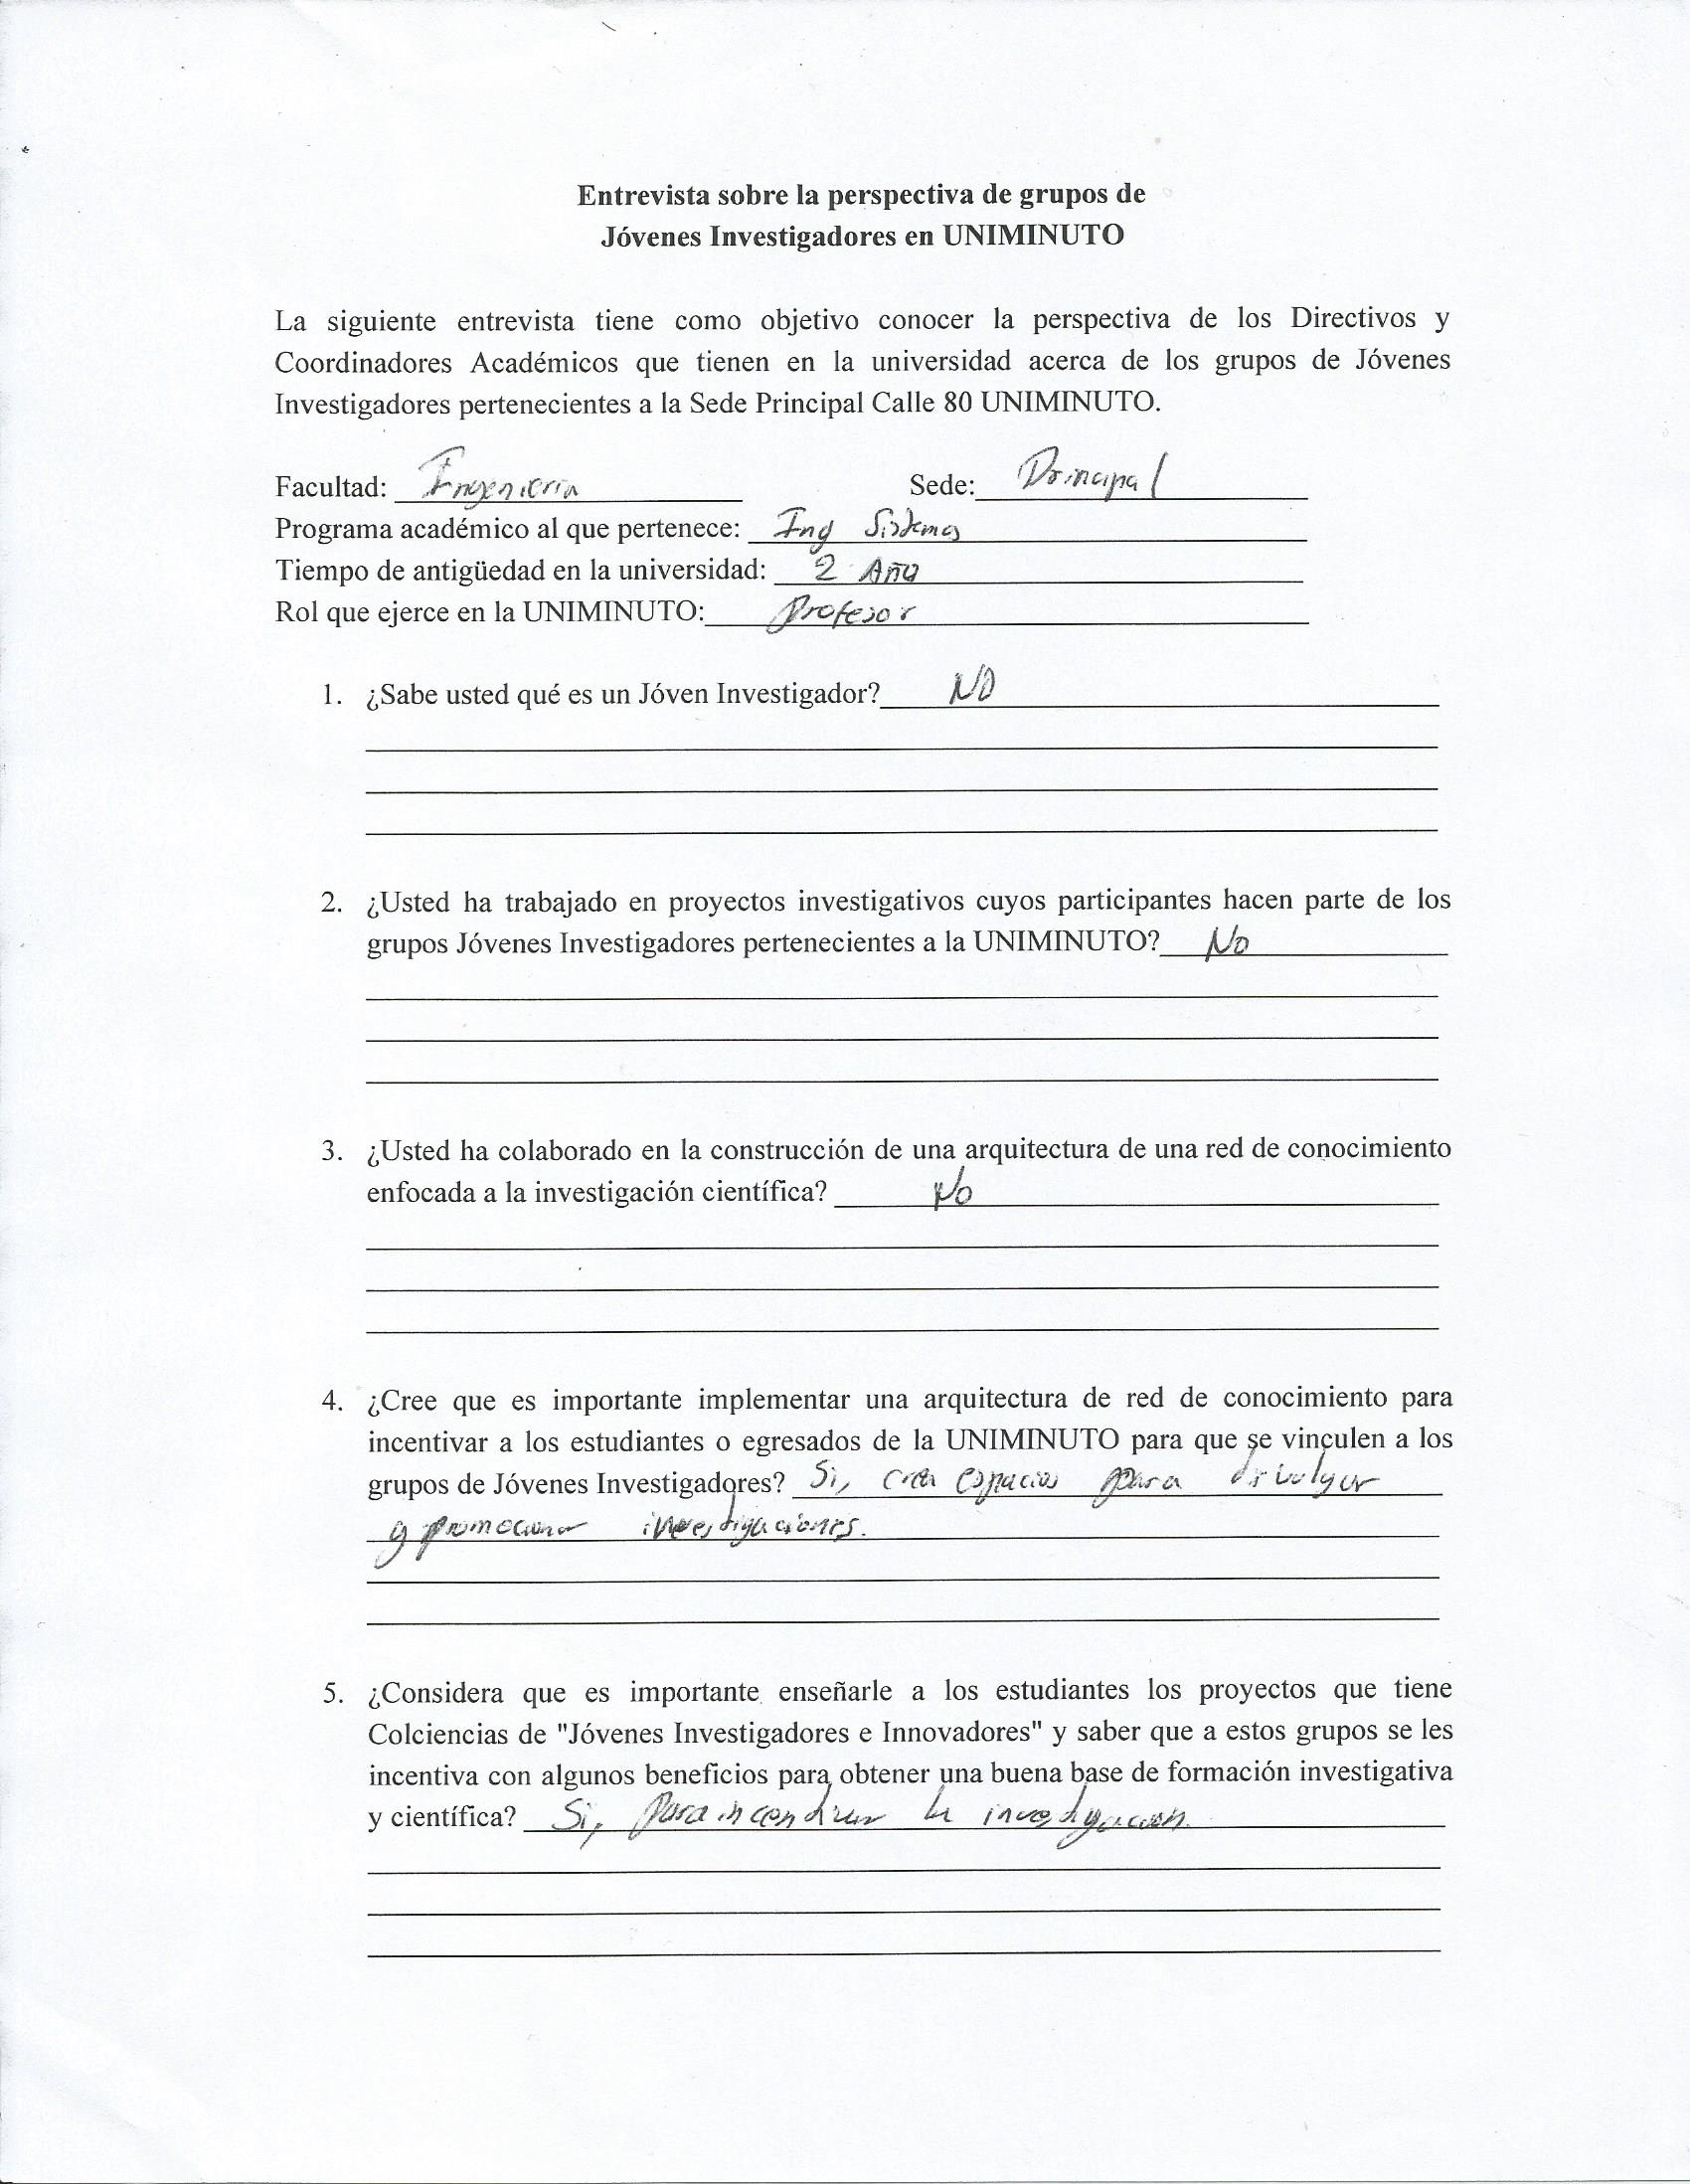 Entrevista sobre la perspectiva de grupos de
Jóvenes Investigadores en UNIMINUTO
La siguiente entrevista tiene como objetivo conocer la perspectiva de los Directivos y
Coordinadores Académicos que tienen en la universidad acerca de los grupos de Jóvenes
Investigadores pertenecientes a la Sede Principal Calle 80 UNIMINUTO.
Facultad: Ingeniería Sede: Principal
Programa académico al que pertenece: Ing Sistemas
Tiempo de antigüedad en la universidad: 2 Año
Rol que ejerce en la UNIMINUTO: Profesor
1. ¿Sabe usted qué es un Jóven Investigador? NO
2. ¿Usted ha trabajado en proyectos investigativos cuyos participantes hacen parte de los
grupos Jóvenes Investigadores pertenecientes a la UNIMINUTO? No
3. ¿Usted ha colaborado en la construcción de una arquitectura de una red de conocimiento
enfocada a la investigación científica? No
4. ¿Cree que es importante implementar una arquitectura de red de conocimiento para
incentivar a los estudiantes o egresados de la UNIMINUTO para que se vinculen a los
grupos de Jóvenes Investigadores? Si, crea espacios para divulgar
y promocionar investigaciones.
5. ¿Considera que es importante enseñarle a los estudiantes los proyectos que tiene
Colciencias de "Jóvenes Investigadores e Innovadores" y saber que a estos grupos se les
incentiva con algunos beneficios para obtener una buena base de formación investigativa
y científica? Si, para incentivar la investigacion.